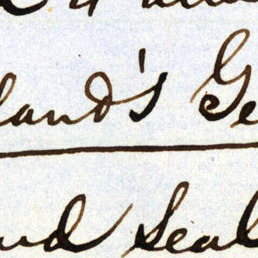 land's Ge
and Seal